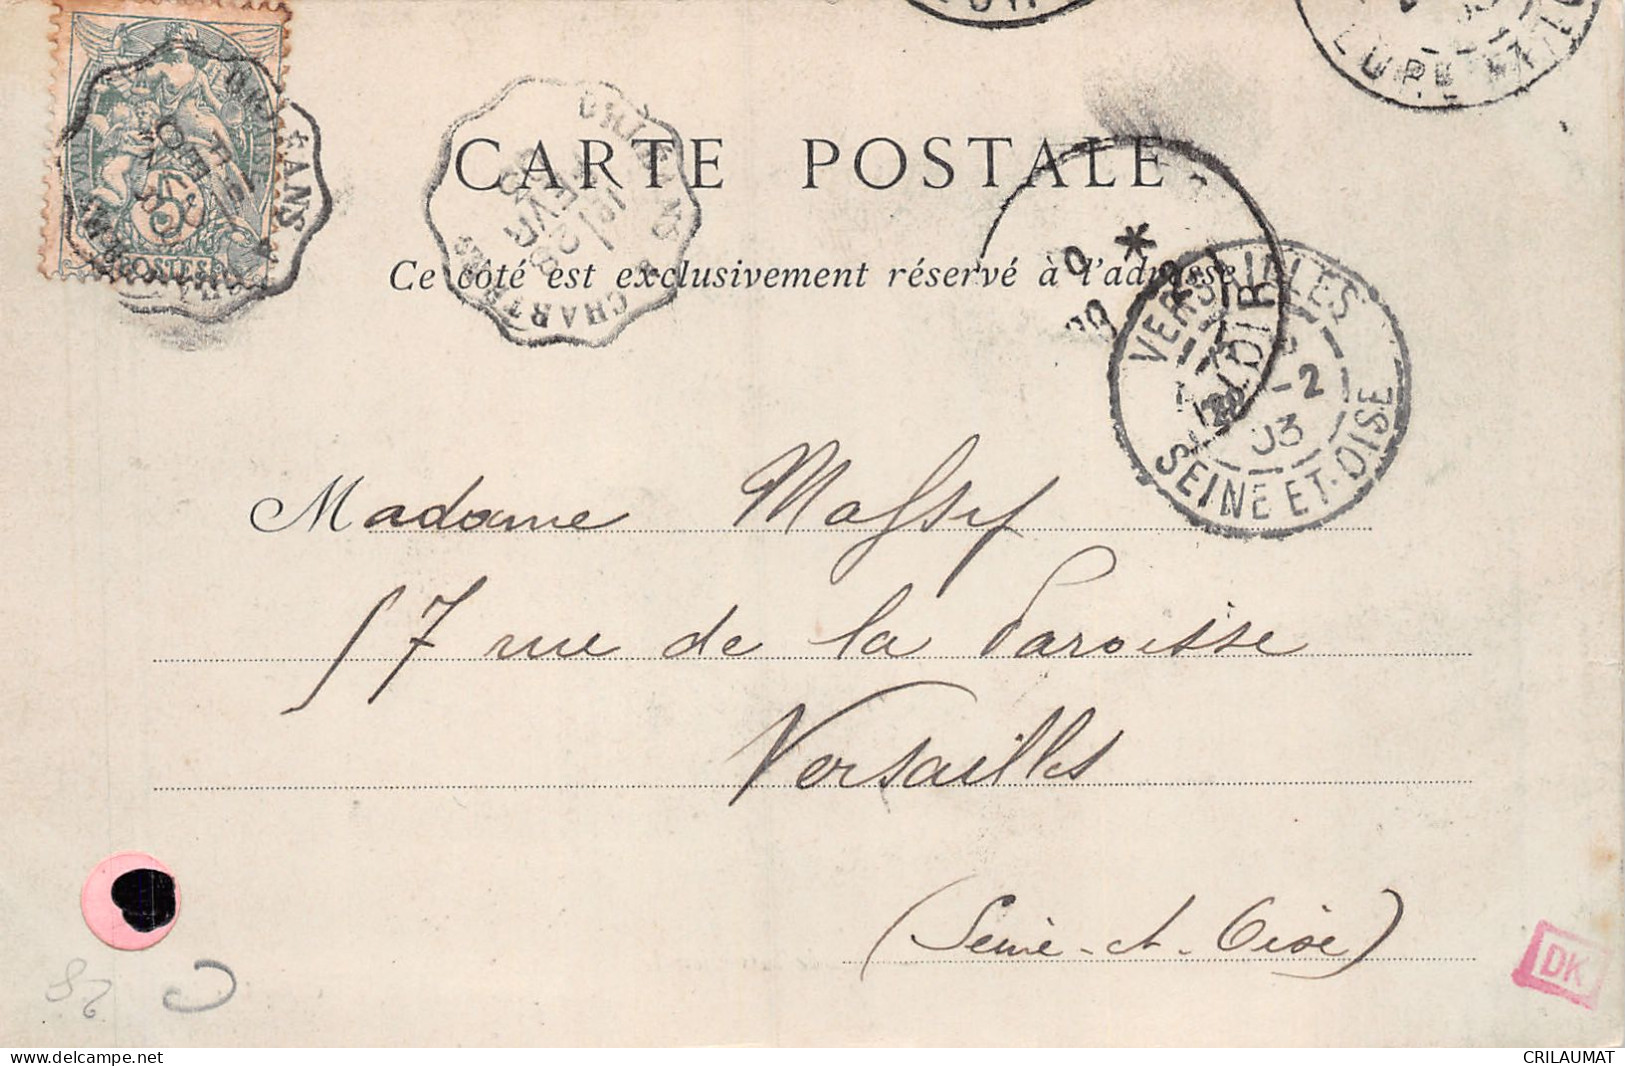 CARTE POSTALE
Ce côté est exclusivement réservé à l'adresse
ORLÉANS
POSTES
ORLÉANS
CHARTRES
FEVR
03
VERSAILLES
-2
03
SEINE ET-OISE
EURE ET
Madame Massif
57 rue de la Paroisse
Versailles
(Seine-et-Oise)
DK
delcampe.net
CRILAUMAT